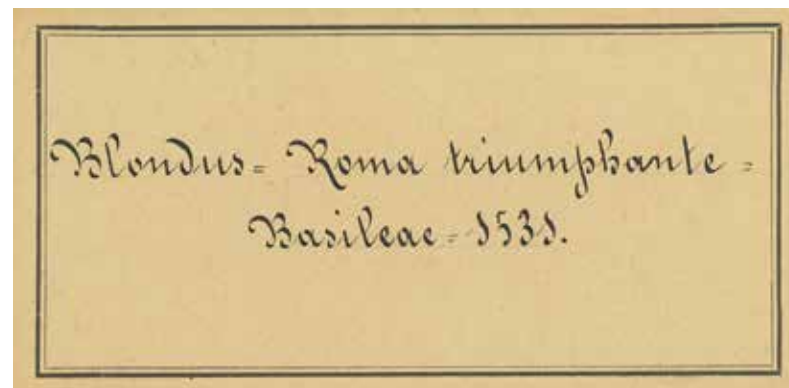 Blondus= Roma triumphante=
Basileae=1531.